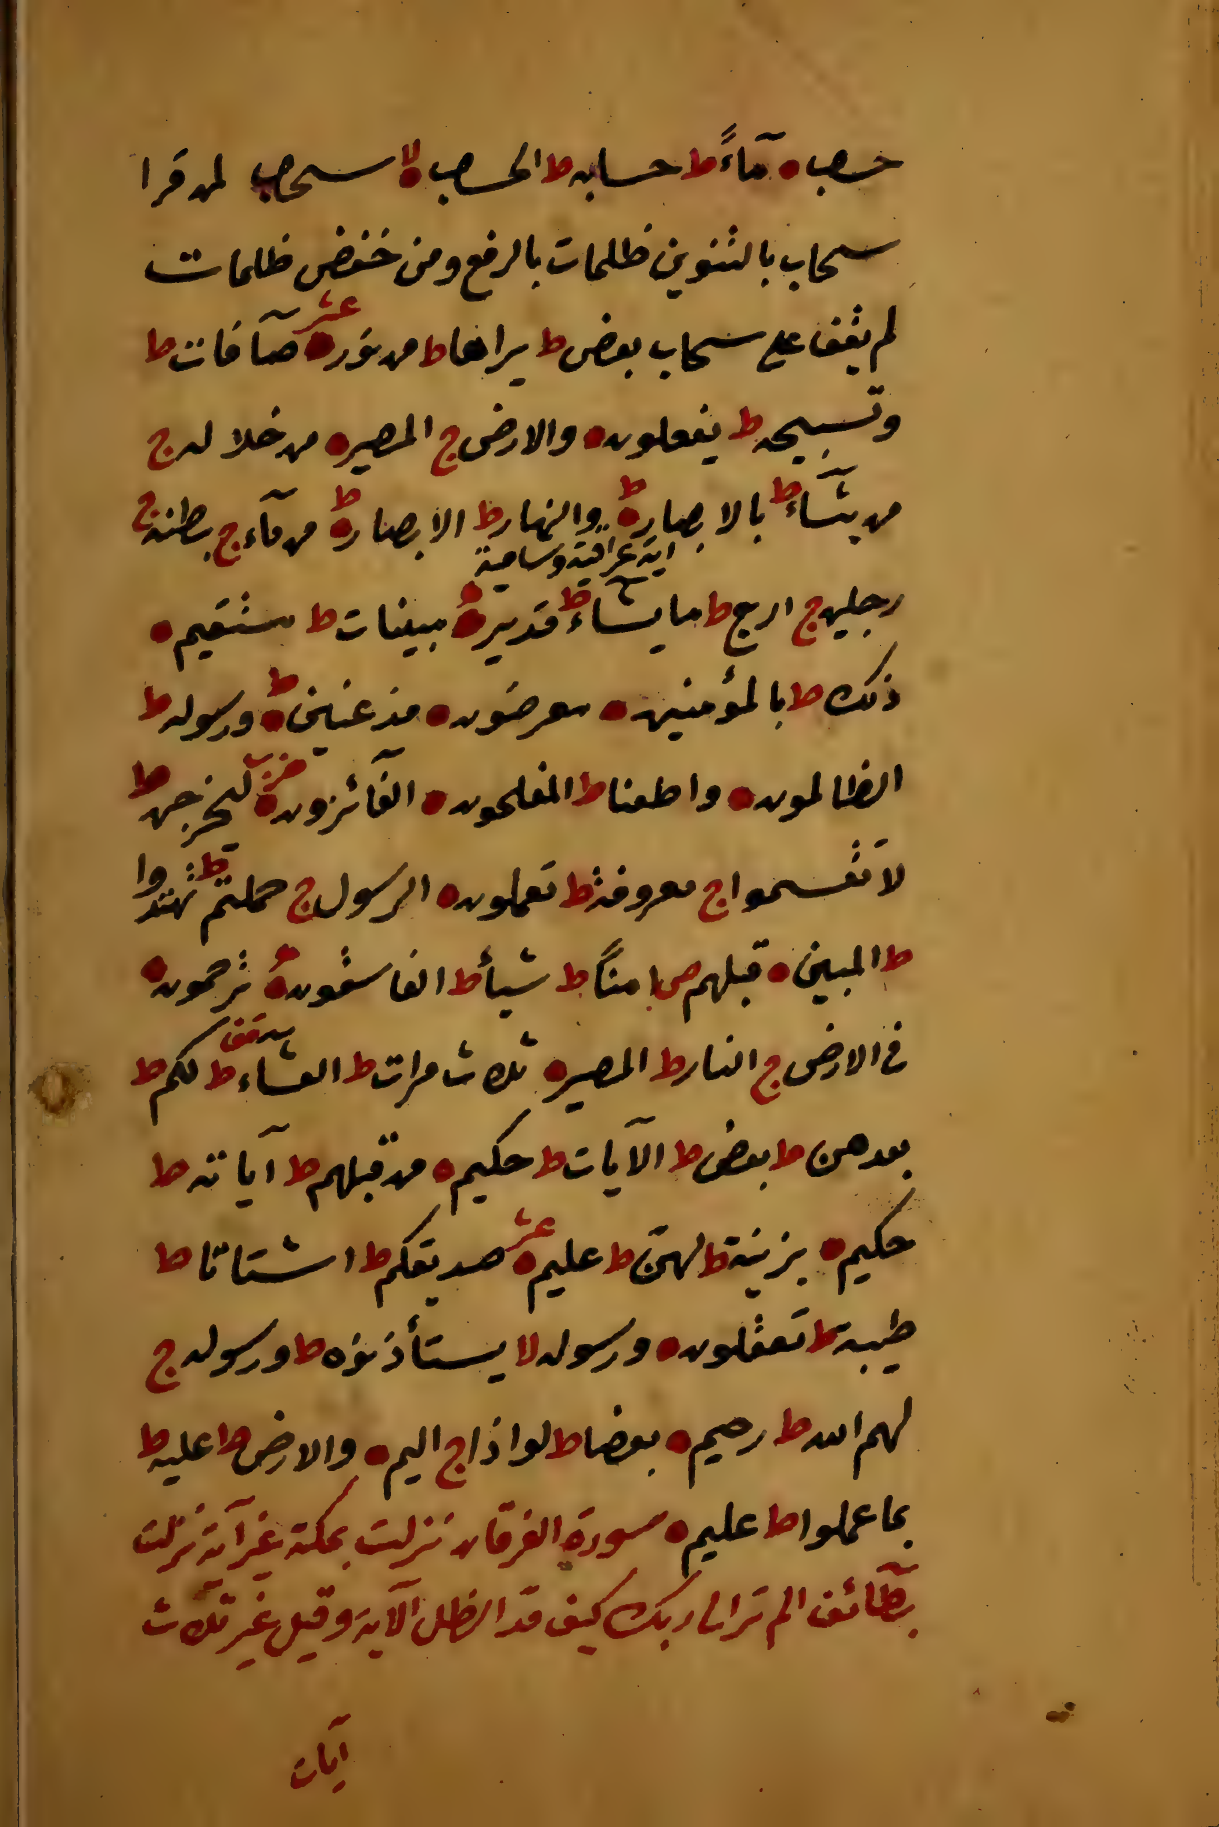 حساب ه مآءً ط حسابه ط الحساب ه لا سحاب لمن قرا
سحاب بالتنوين ظلمات بالرفع ومن خفض ظلمات
لم يقف على سحاب بعض ط يراها ط من نور ه عشر صآفات ط
وتسبيحه ط يفعلون ه والارض ج المصير ه من خلاله ج
من يشآء ط بالابصار ه ط والنهار ط الابصار ه ط من مآء ج بطنه ج
اية عراقية وشامية
رجلين ج اربع ط ما يشآء ط قدير ه مبينات ط مستقيم ه
ذلك ط بالمؤمنين ه معرضون ه مذعنين ه ط ورسوله ط
الظالمون ه واطعنا ط المفلحون ه الفآئزون ه حزب ليخرجن ط
لا تقسموا ج معروفة ط تعملون ه الرسول ج حملتم ط تهتدوا
ط المبين ه قبلهم ص امناً ط شيأ ط الفاسقون ه ترحمون ه
في الارض ج النار ط المصير ه ثلاث مرات ط العشآء ط لكم ط
بعدهن ط بعض ط الآيات ط حكيم ه من قبلهم ط آياته ط
حكيم ه بزينة ط لهن ط عليم ه عشر صديقكم ط اشتاتا ط
طيبة ط تعقلون ه ورسوله لا يستأذنوه ط ورسوله ج
لهم الله ط رحيم ه بعضا ط لواذا ج اليم ه والارض ط عليه ط
بما عملوا ط عليم ه سورة الفرقان نزلت بمكة غير آية نزلت
بطآئف الم تر الى ربك كيف مد الظل الآية وقيل غير ثلاث
آيات